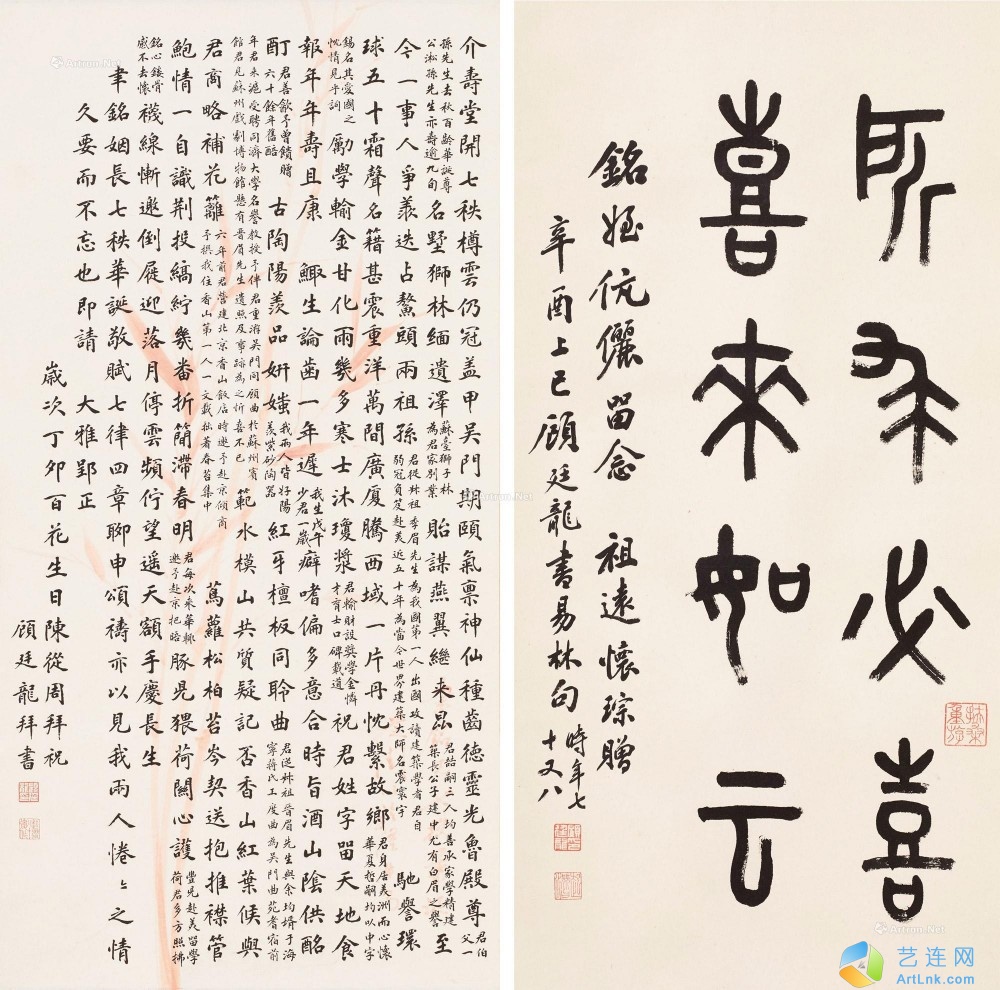 所求必喜
喜來如云
銘姪伉儷留念 祖遠懷琮贈
辛酉上巳顧廷龍書易林句 時年七十又八
介壽堂開七秩樽雲仍冠蓋甲吴門期頤氣稟神仙種齒德靈光魯殿尊 君伯父一
孫先生去秋百齡華誕尊公淞孫先生亦壽逾九旬 名墅獅林緬遺澤 蘇臺獅子林為君家別業 貽謀燕翼繼来昆 君喆嗣三人均善承家學精建築長公子建中尤有白眉之譽 至
今一事人爭羨迭占鰲頭兩祖孫 君從叔祖季眉先生為我國第一人出國攻讀建築學者君自弱冠負笈赴美近五十年為當今世界建築大師名震寰宇 馳譽環
球五十霜聲名籍甚震重洋萬間廣厦騰西域一片丹忱繫故鄉 君身居美洲而心懷華夏哲嗣均以中字
錫名其愛國之忱情見乎詞 勵學輸金甘化雨幾多寒士沐瓊漿 君輸財設獎學金憐才育士口碑載道 祝君姓字留天地食
報年年壽且康 鯫生論齒一年遲 我生戊午少君一歲 癖嗜偏多意合時旨酒山陰供酩
酊 君善飲予曾饋贈六十餘年舊醅 古陶陽羨品妍媸 我兩人皆好陽羨紫砂陶器 紅牙檀板同聆曲 君從叔祖晉眉先生與余均壻于海寧蔣氏工度曲為吴門曲苑耆宿前
年君来滬受聘同濟大學名譽教授予伴君重游吴門同顧曲於蘇州賓館君見蘇州戲劇博物館懸有晉眉先生遺照及事跡為之忻喜不已 範水模山共質疑記否香山紅葉候與
君商略補花籬 六年前君營建北京香山飯店時邀予赴京傾商予撰我住香山第一人一文載拙著春苔集中 蔦蘿松柏苔岑契送抱推襟管
鮑情一自識荆投縞紵幾番折簡滯春明 君每次来華輒邀予赴京把晤 豚兒猥荷關心護 豐兒赴美留學荷君多方照拂
銘心鏤骨感不去懷 襪線慚邀倒屣迎落月停雲頻佇望遥天額手慶長生
聿銘姻長七秩華誕敬賦七律四章聊申頌禱亦以見我兩人惓々之情
久要而不忘也即請 大雅郢正
歲次丁卯百花生日陳從周拜祝
顧廷龍拜書
艺连网
ArtLnk.com